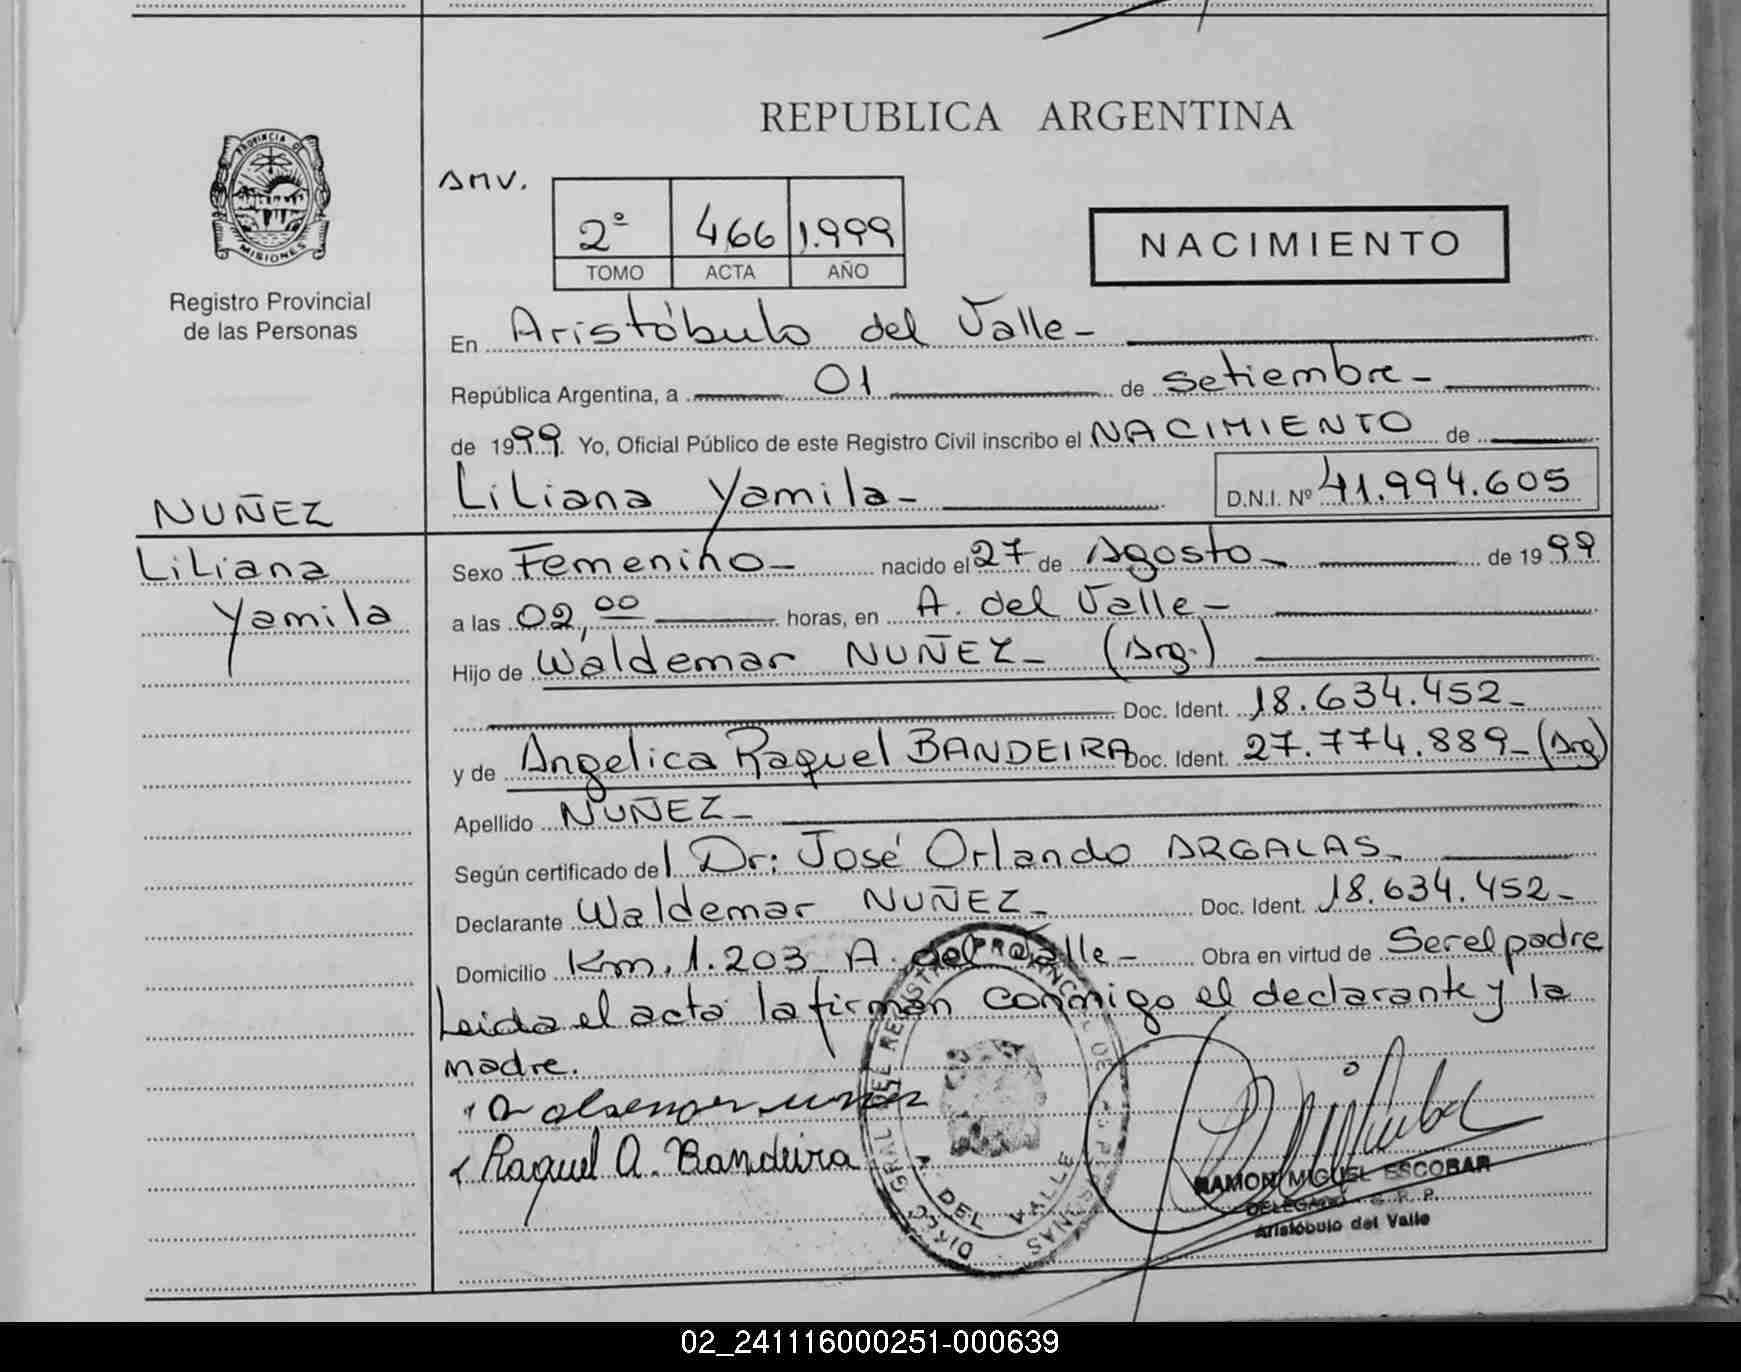 REPUBLICA ARGENTINA
PROVINCIA DE
MISIONES
Registro Provincial
de las Personas
AMV.
2º 466 1.999
TOMO ACTA AÑO
NACIMIENTO
En Aristóbulo del Valle-
República Argentina, a 01 de setiembre-
de 1999. Yo, Oficial Público de este Registro Civil inscribo el NACIMIENTO de
Liliana Yamila- D.N.I. Nº 41.994.605
NUÑEZ
Liliana
Yamila
Sexo Femenino- nacido el 27 de Agosto- de 1999
a las 02,00 horas, en A. del Valle-
Hijo de Waldemar NUÑEZ- (Arg.)
Doc. Ident. 18.634.452-
y de Angelica Raquel BANDEIRA Doc. Ident. 27.774.889-(Arg)
Apellido NUÑEZ-
Según certificado del Dr: José Orlando ARGALAS-
Declarante Waldemar NUÑEZ- Doc. Ident. 18.634.452-
Domicilio Km. 1.203 A. del Valle- Obra en virtud de Ser el padre
Leida el acta la firman conmigo el declarante y la
madre.
Raquel A. Bandeira
A DEL VALLE
RAMON MIGUEL ESCOBAR
DELEGADO R. P.
Aristóbulo del Valle
02_241116000251-000639